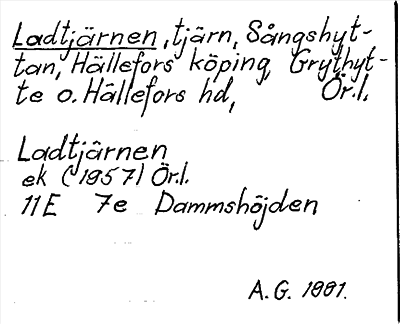 Ladtjärnen, tjärn, Sångshyt-
tan, Hällefors köping, Grythyt-
te o. Hällefors hd, Ör.l.
Ladtjärnen
ek (1957) Ör.l.
11E 7e Dammshöjden
A.G. 1981.